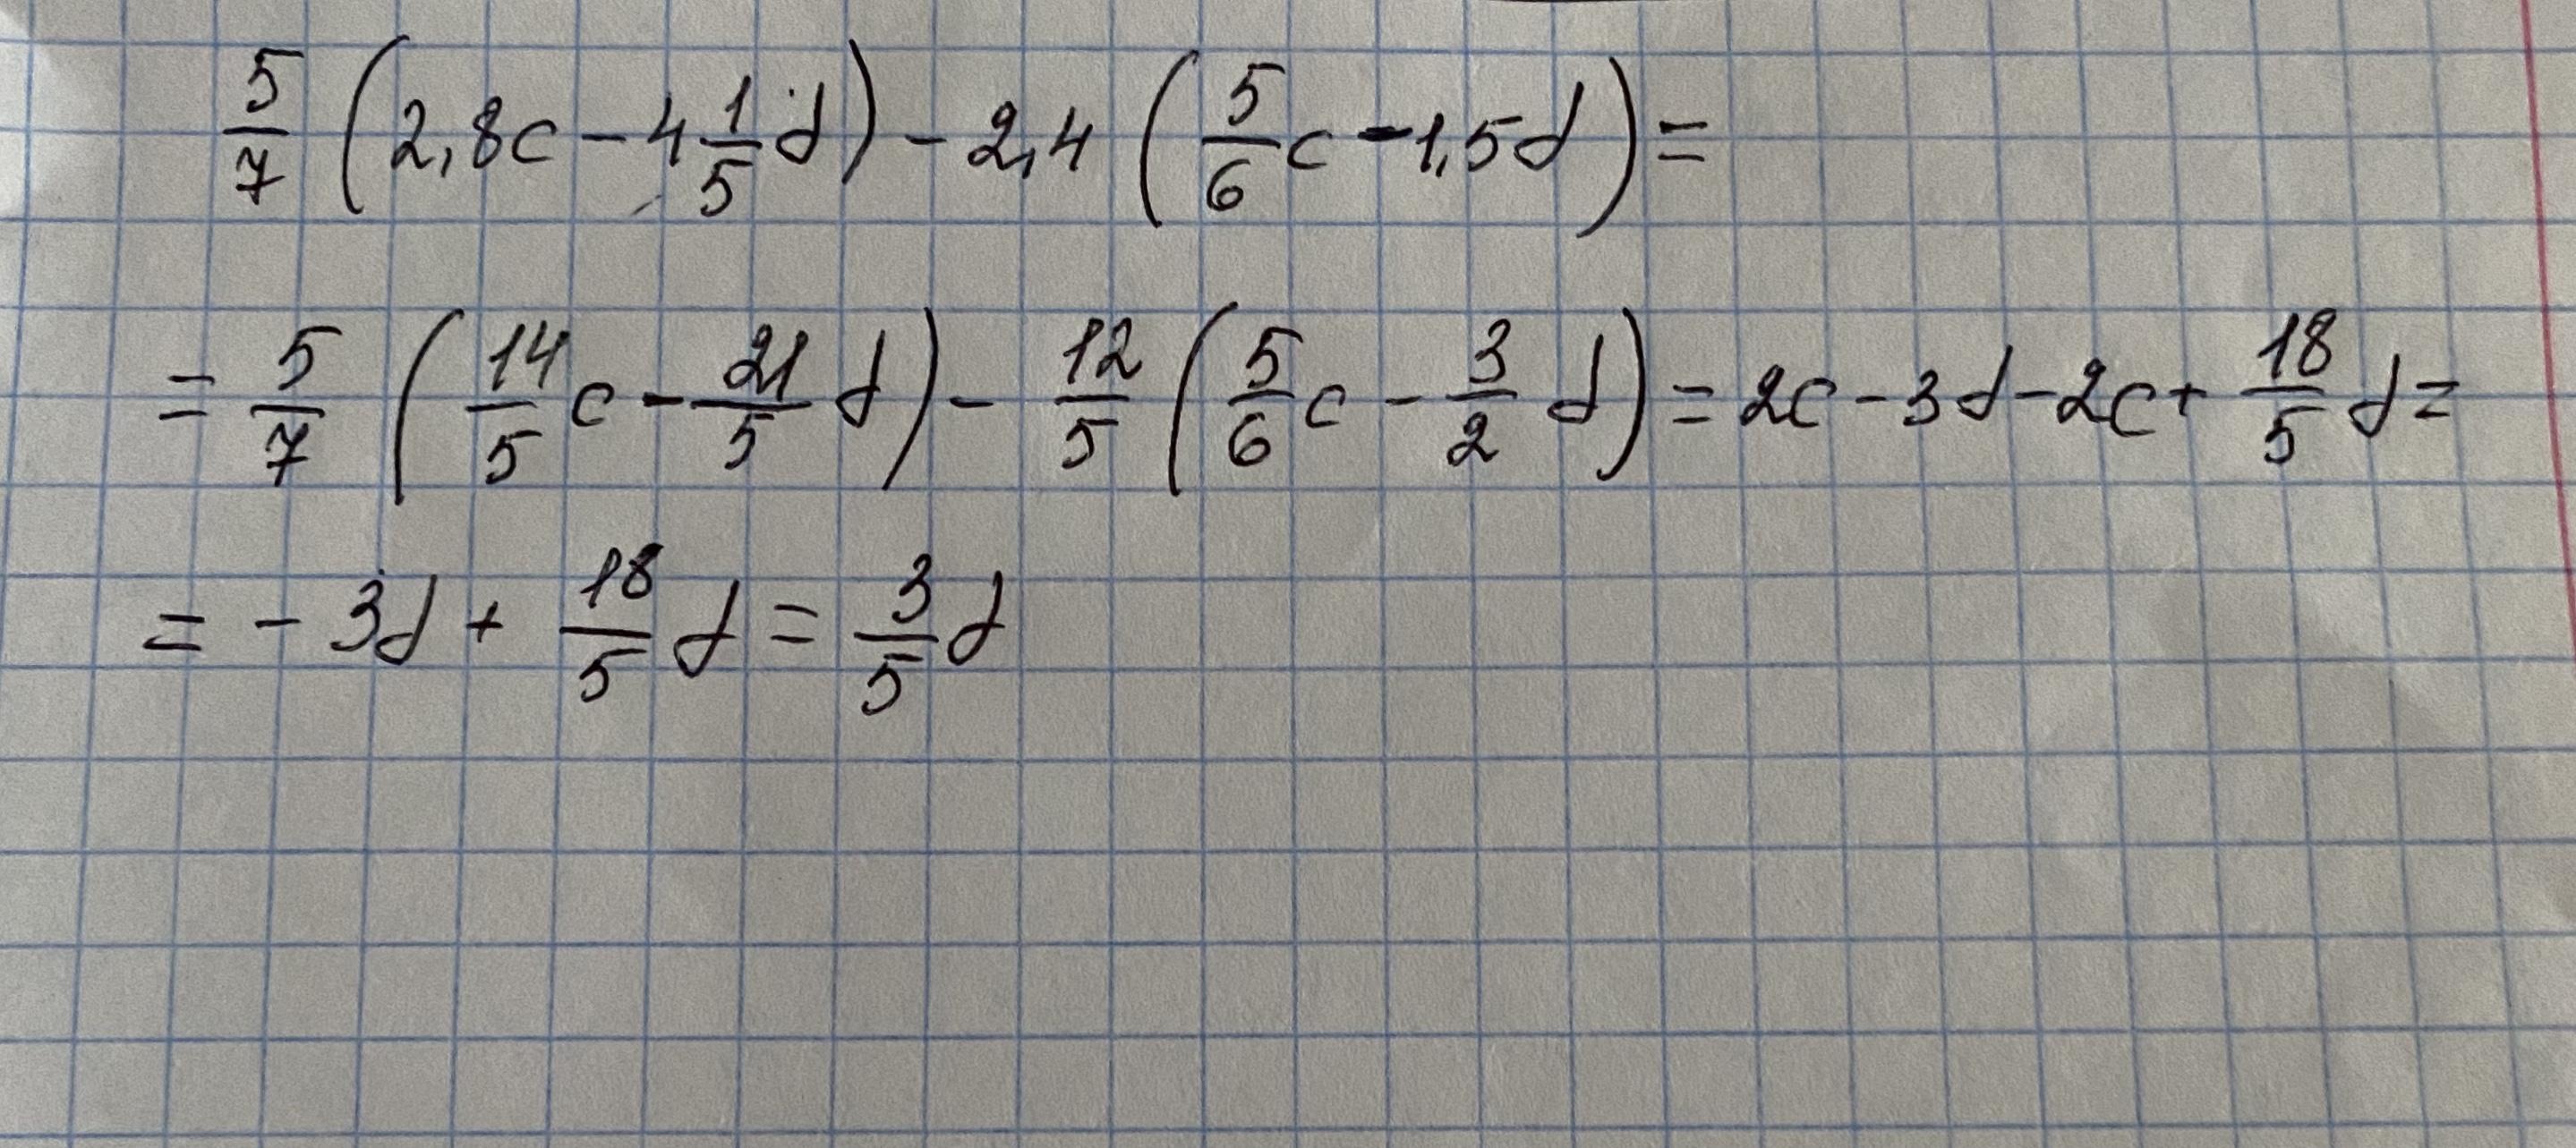 5/7 (2,8c - 4 1/5 d) - 2,4 (5/6 c - 1,5d) =
= 5/7 (14/5 c - 21/5 d) - 12/5 (5/6 c - 3/2 d) = 2c - 3d - 2c + 18/5 d =
= - 3d + 18/5 d = 3/5 d